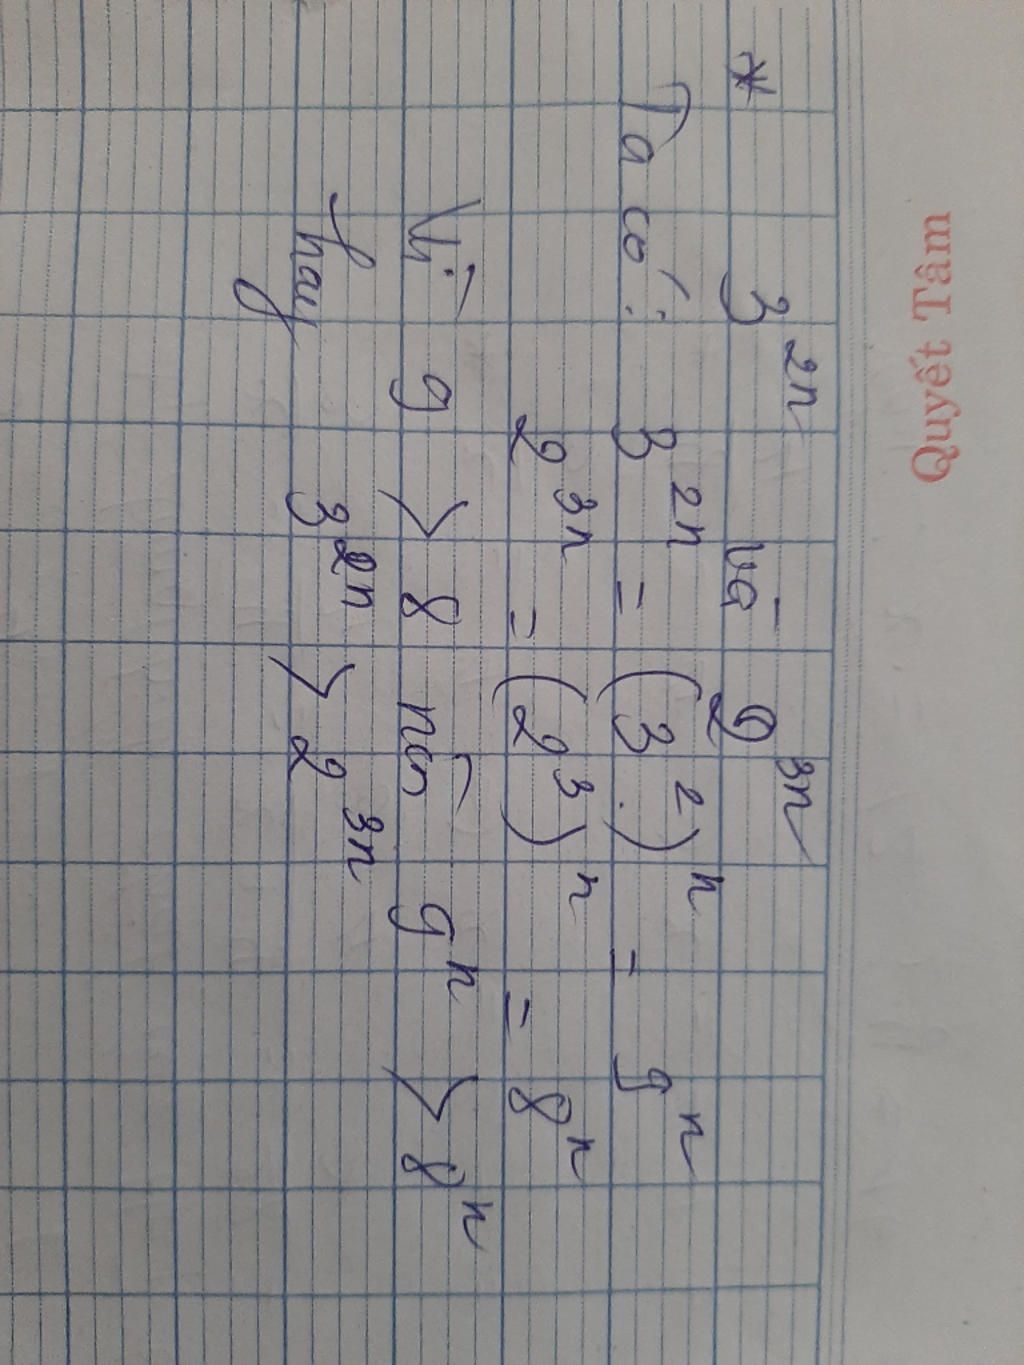 Quyết Tâm
* 3^{2n} và 2^{3n}
Ta có: 3^{2n} = (3^2)^n = 9^n
2^{3n} = (2^3)^n = 8^n
Vì 9 > 8 nên 9^n > 8^n
hay 3^{2n} > 2^{3n}